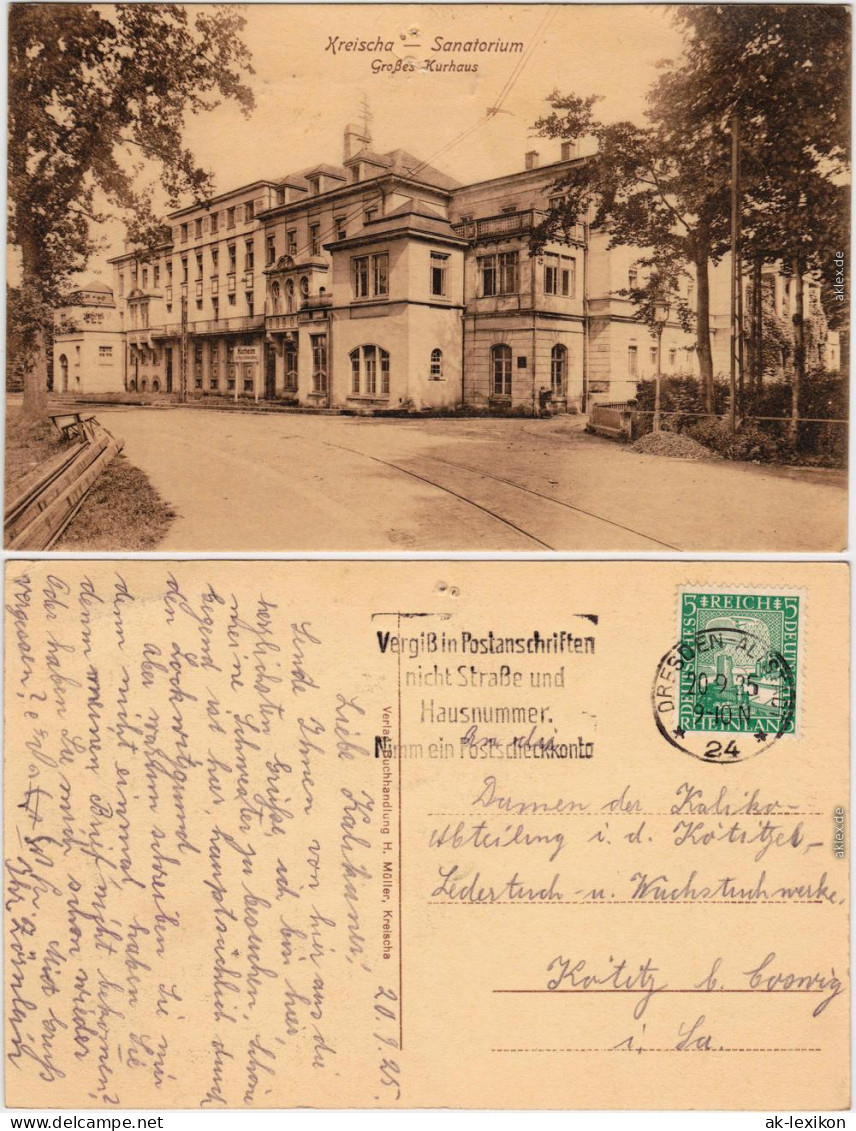 Kreischa — Sanatorium
Großes Kurhaus
Kurhaus
aklex.de
Vergiß in Postanschriften
nicht Straße und
Hausnummer.
Nimm ein Postscheckkonto
DEUTSCHES REICH
5 5
RHEINLAND
DRESDEN-ALTST.
20.9.25
9-10 N
* 24 *
An die
Damen der Kaliko-
Abteilung i. d. Kötitzer
Ledertuch- u. Wachstuchwerke,
Kötitz b. Coswig
i. Sa.
Verlag Buchhandlung H. Müller, Kreischa
20.9.25.
Liebe
Sende Ihnen von hier aus die
herzlichsten Grüße, ich bin hier,
meine Schwester zu besuchen, schöne
Gegend ist hier, hauptsächlich durch
den Lockwitzgrund.
Aber warum schreiben Sie mir
denn nicht einmal, haben Sie
denn meinen Brief nicht bekommen?
Oder haben Sie mich schon wieder
vergessen?
aklex.de
ak-lexikon.com